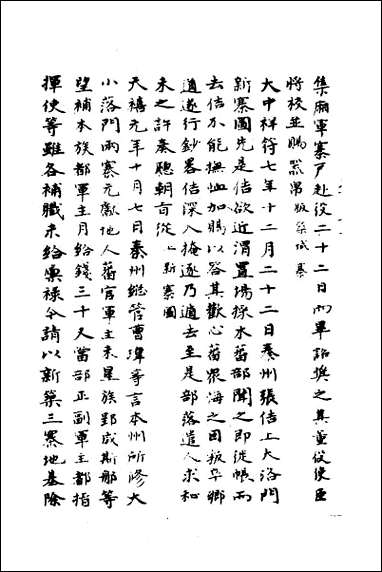 集廂軍寨户赴役二十二日而畢詔奬之其董役使臣
將校並賜
大中祥符七年十二月二十二日秦州張佶上大洛門
新寨圖先是佶欲近渭置場採木蕃部聞之即徙帳而
去佶不能撫恤加賜以答其歡心蕃衆海之因叛卒鄉
道遂行鈔畧佶深入掩逐乃遁去至是部落遣人求和
未之許秦聰朝旨從上新寨圖
天禧元年十月七日秦州總管曹瑋等言本州所修大
小落門兩寨元獻地人蕃官軍主未星族郢成斯那等
望補本族都軍主月給錢三十又當部正副軍主都指
揮使等雖各補職未給禀禄今請以新築三寨地基除